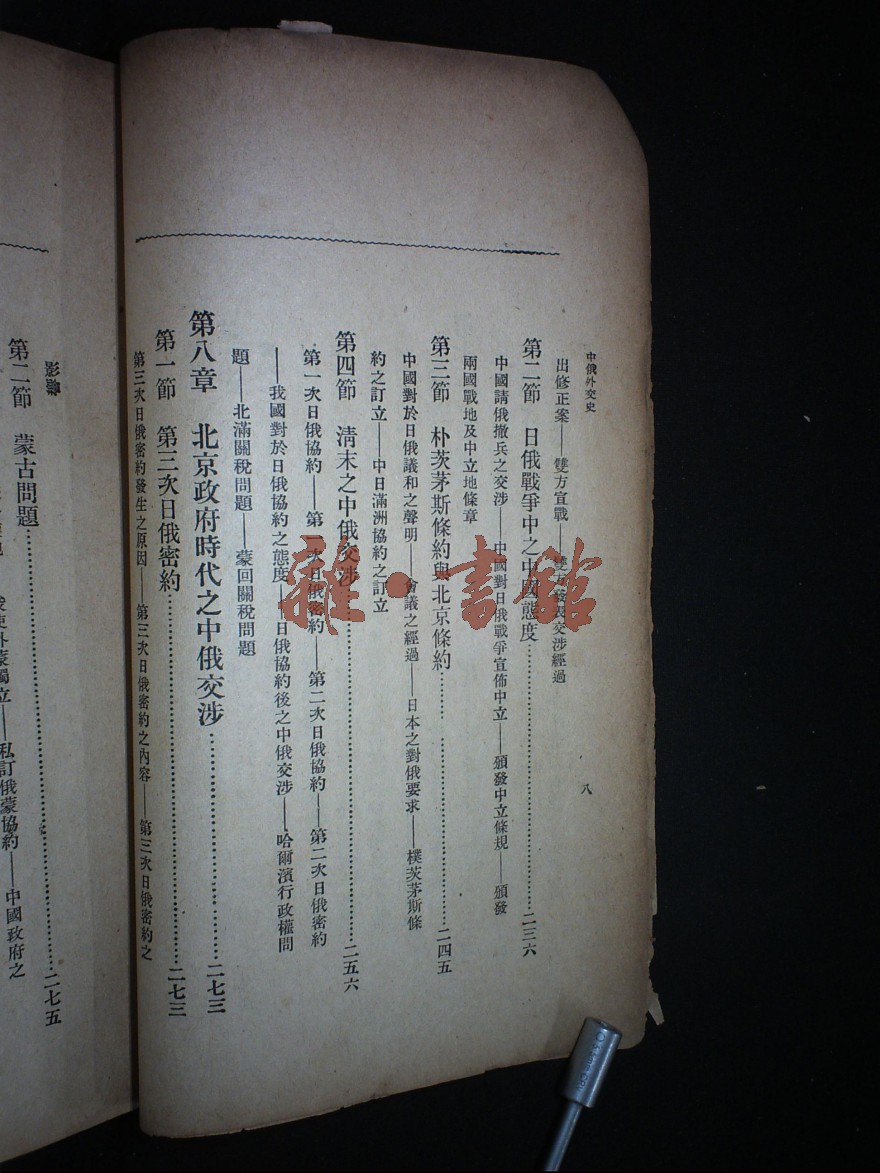 中俄外交史
八
出修正案——雙方宣戰——雙方發表交涉經過
第二節 日俄戰爭中之中國態度…………二三六
中國請俄撤兵之交涉——中國對日俄戰爭宣佈中立——頒發中立條規——頒發
兩國戰地及中立地條章
第三節 朴茨茅斯條約與北京條約…………二四五
中國對於日俄議和之聲明——會議之經過——日本之對俄要求——樸茨茅斯條
約之訂立——中日滿洲協約之訂立
第四節 清末之中俄交涉…………二五六
第一次日俄協約——第一次日俄密約——第二次日俄協約——第二次日俄密約
——我國對於日俄協約之態度——日俄協約後之中俄交涉——哈爾濱行政權問
題——北滿關稅問題——蒙回關稅問題
第八章 北京政府時代之中俄交涉…………二七三
第一節 第三次日俄密約…………二七三
第三次日俄密約發生之原因——第三次日俄密約之內容——第三次日俄密約之
影響
第二節 蒙古問題…………二七五
外蒙獨立——私訂俄蒙協約——中國政府之
雜·書館